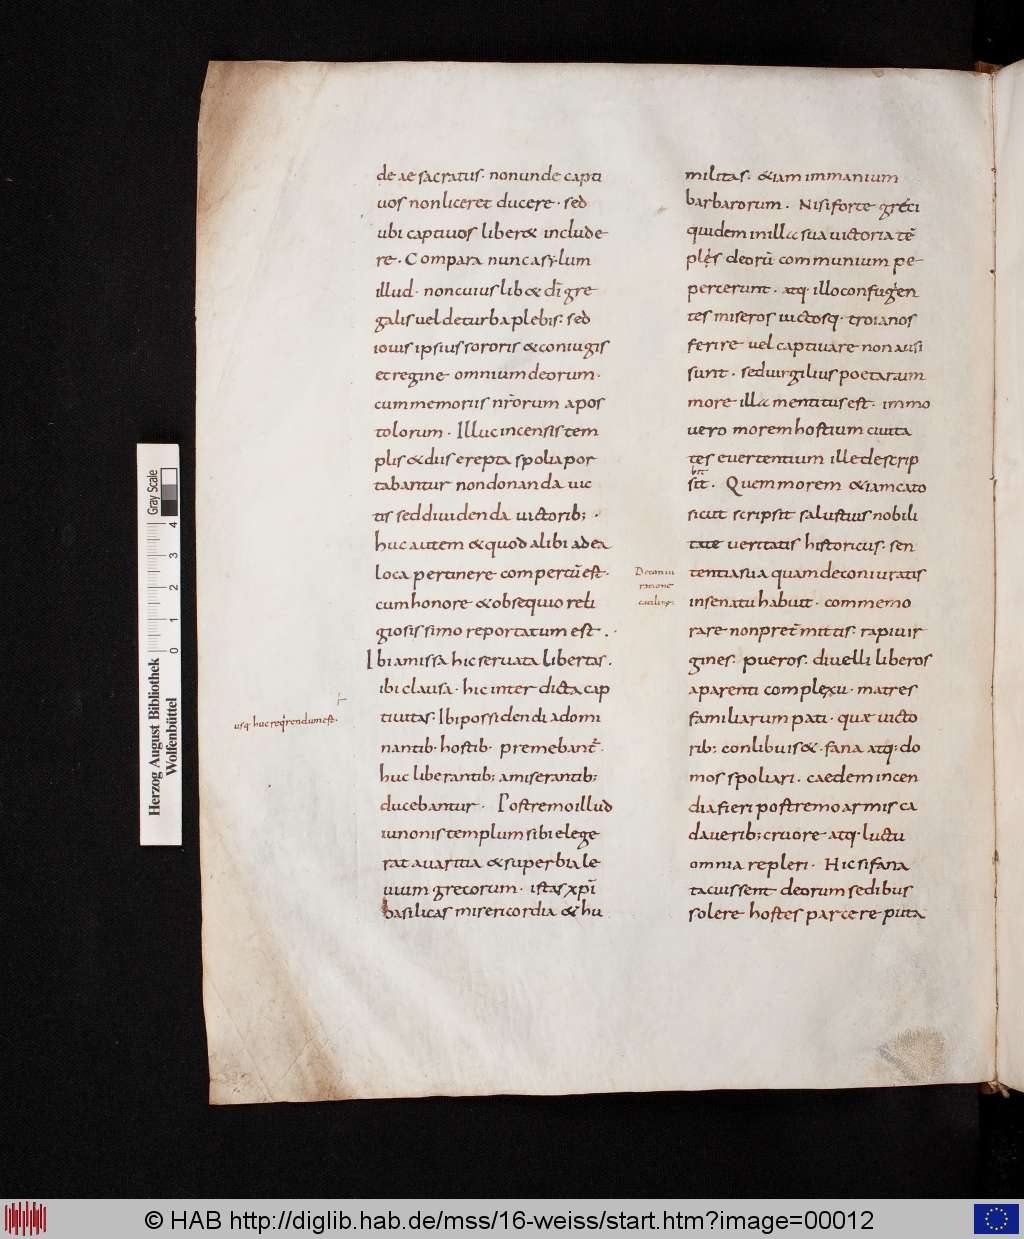 de ae sacratus· non unde capti
uos non liceret ducere· sed
ubi captiuos liber& include
re· Compara nunc asylum
illud· non cuius lib& di gre
galis uel de turba plebis· sed
iouis ipsius sororis & coniugis
et regine omnium deorum·
cum memoriis nr̄orum apos
tolorum· Illuc incensis tem
plis & diis erepta spolia por
tabantur non donanda uic
tis sed diuidenda uictorib; ·
huc autem & quod alibi ad ea
loca pertinere compertū est·
cum honore & obsequio reli
giosissimo reportatum est ··
Ibi amissa hic seruata libertas·
ibi clausa· hic interdicta cap
tiuitas· Ibi possidendi a domi
nantib· hostib· premebant̄·
huc liberantib; a miserantib;
ducebantur· Postremo illud
iunonis templum sibi elege
rat auaritia & superbia le
uium grecorum· istas xpī
basilicas misericordia & hu
usq· huc reqrendum est·
militas· &iam immanium
barbarorum· Nisi forte greci
quidem in illa sua uictoria tē
ples deorū communium pe
percerunt· atq· illo confugen
tes miseros uictosq· troianos
ferire uel captiuare non ausi
sunt· sed uirgilius poetarum
more illa mentitus est· immo
uero morem hostium ciuita
tes euertentium ille descrip
sit· Quem morem &iam cato
sicut scripsit salustius nobili
tate ueritatis historicus· sen
tentia sua quam de coniuratis
in senatu habuit· commemo
rare non pret̄mittis· rapi uir
gines· pueros· diuelli liberos
a parenti complexu· matres
familiarum pati· quæ uicto
rib; conlibuiss&· fana atq; do
mos spoliari· caedem incen
dia fieri postremo armis ca
daverib; cruore atq· luctu
omnia repleri· Hic si fana
tacuissent deorum sedibus
solere hostes parcere puta
De coniu
ratione
© HAB http://diglib.hab.de/mss/16-weiss/start.htm?image=00012
Herzog August Bibliothek
Wolfenbüttel
0 1 2 3 4
Gray Scale